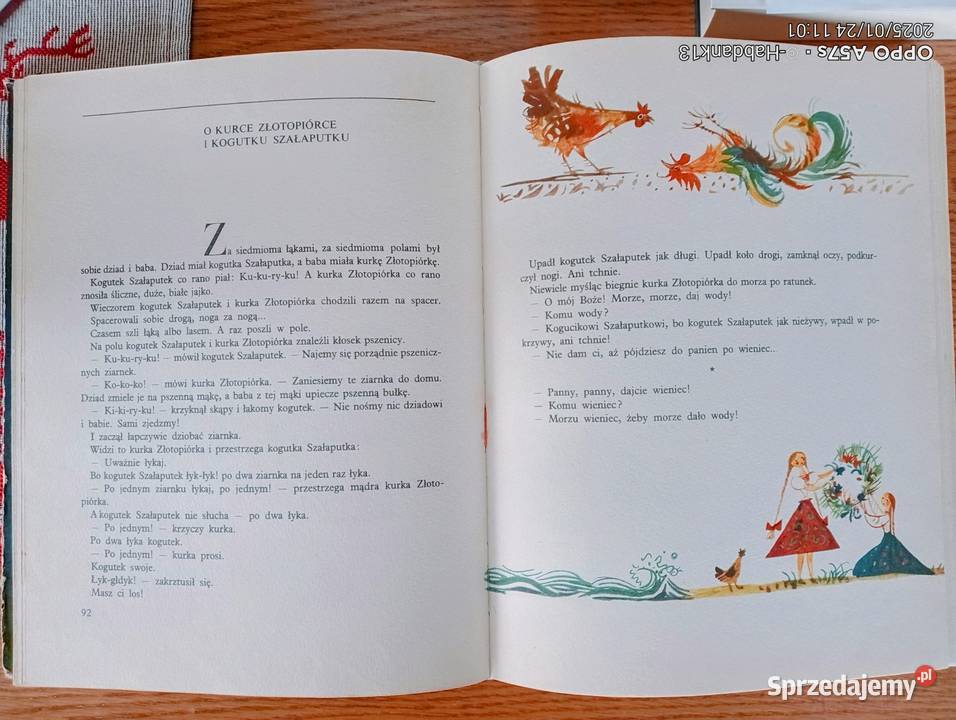 O KURCE ZŁOTOPIÓRCE
I KOGUTKU SZAŁAPUTKU
Za siedmioma łąkami, za siedmioma polami był
sobie dziad i baba. Dziad miał kogutka Szałaputka, a baba miała kurkę Złotopiórkę.
Kogutek Szałaputek co rano piał: Ku-ku-ry-ku! A kurka Złotopiórka co rano
znosiła śliczne, duże, białe jajko.
Wieczorem kogutek Szałaputek i kurka Złotopiórka chodzili razem na spacer.
Spacerowali sobie drogą, noga za nogą...
Czasem szli łąką albo lasem. A raz poszli w pole.
Na polu kogutek Szałaputek i kurka Złotopiórka znaleźli kłosek pszenicy.
— Ku-ku-ry-ku! — mówił kogutek Szałaputek. — Najemy się porządnie pszenicz-
nych ziarnek.
— Ko-ko-ko! — mówi kurka Złotopiórka. — Zaniesiemy te ziarnka do domu.
Dziad zmiele je na pszenną mąkę, a baba z tej mąki upiecze pszenną bułkę.
— Ki-ki-ry-ku! — krzyknął skąpy i łakomy kogutek. — Nie nośmy nic dziadowi
i babie. Sami zjedzmy!
I zaczął łapczywie dziobać ziarnka.
Widzi to kurka Złotopiórka i przestrzega kogutka Szałaputka:
— Uważnie łykaj.
Bo kogutek Szałaputek łyk-łyk! po dwa ziarnka na jeden raz łyka.
— Po jednym ziarnku łykaj, po jednym! — przestrzega mądra kurka Złoto-
piórka.
A kogutek Szałaputek nie słucha — po dwa łyka.
— Po jednym! — krzyczy kurka.
Po dwa łyka kogutek.
— Po jednym! — kurka prosi.
Kogutek swoje.
Łyk-głdyk! — zakrztusił się.
Masz ci los!
92
Upadł kogutek Szałaputek jak długi. Upadł koło drogi, zamknął oczy, podkur-
czył nogi. Ani tchnie.
Niewiele myśląc biegnie kurka Złotopiórka do morza po ratunek.
— O mój Boże! Morze, morze, daj wody!
— Komu wody?
— Kogucikowi Szałaputkowi, bo kogutek Szałaputek jak nieżywy, wpadł w po-
krzywy, ani tchnie!
— Nie dam ci, aż pójdziesz do panien po wieniec...
*
— Panny, panny, dajcie wieniec!
— Komu wieniec?
— Morzu wieniec, żeby morze dało wody!
OPPO A57s · -Habdank13
2025/01/24 11:01
Sprzedajemy.pl